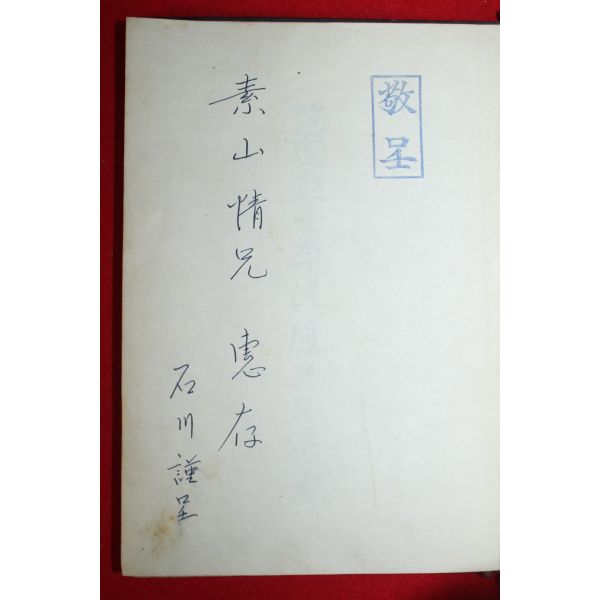 敬呈
素山情兄 惠存
石川 謹呈